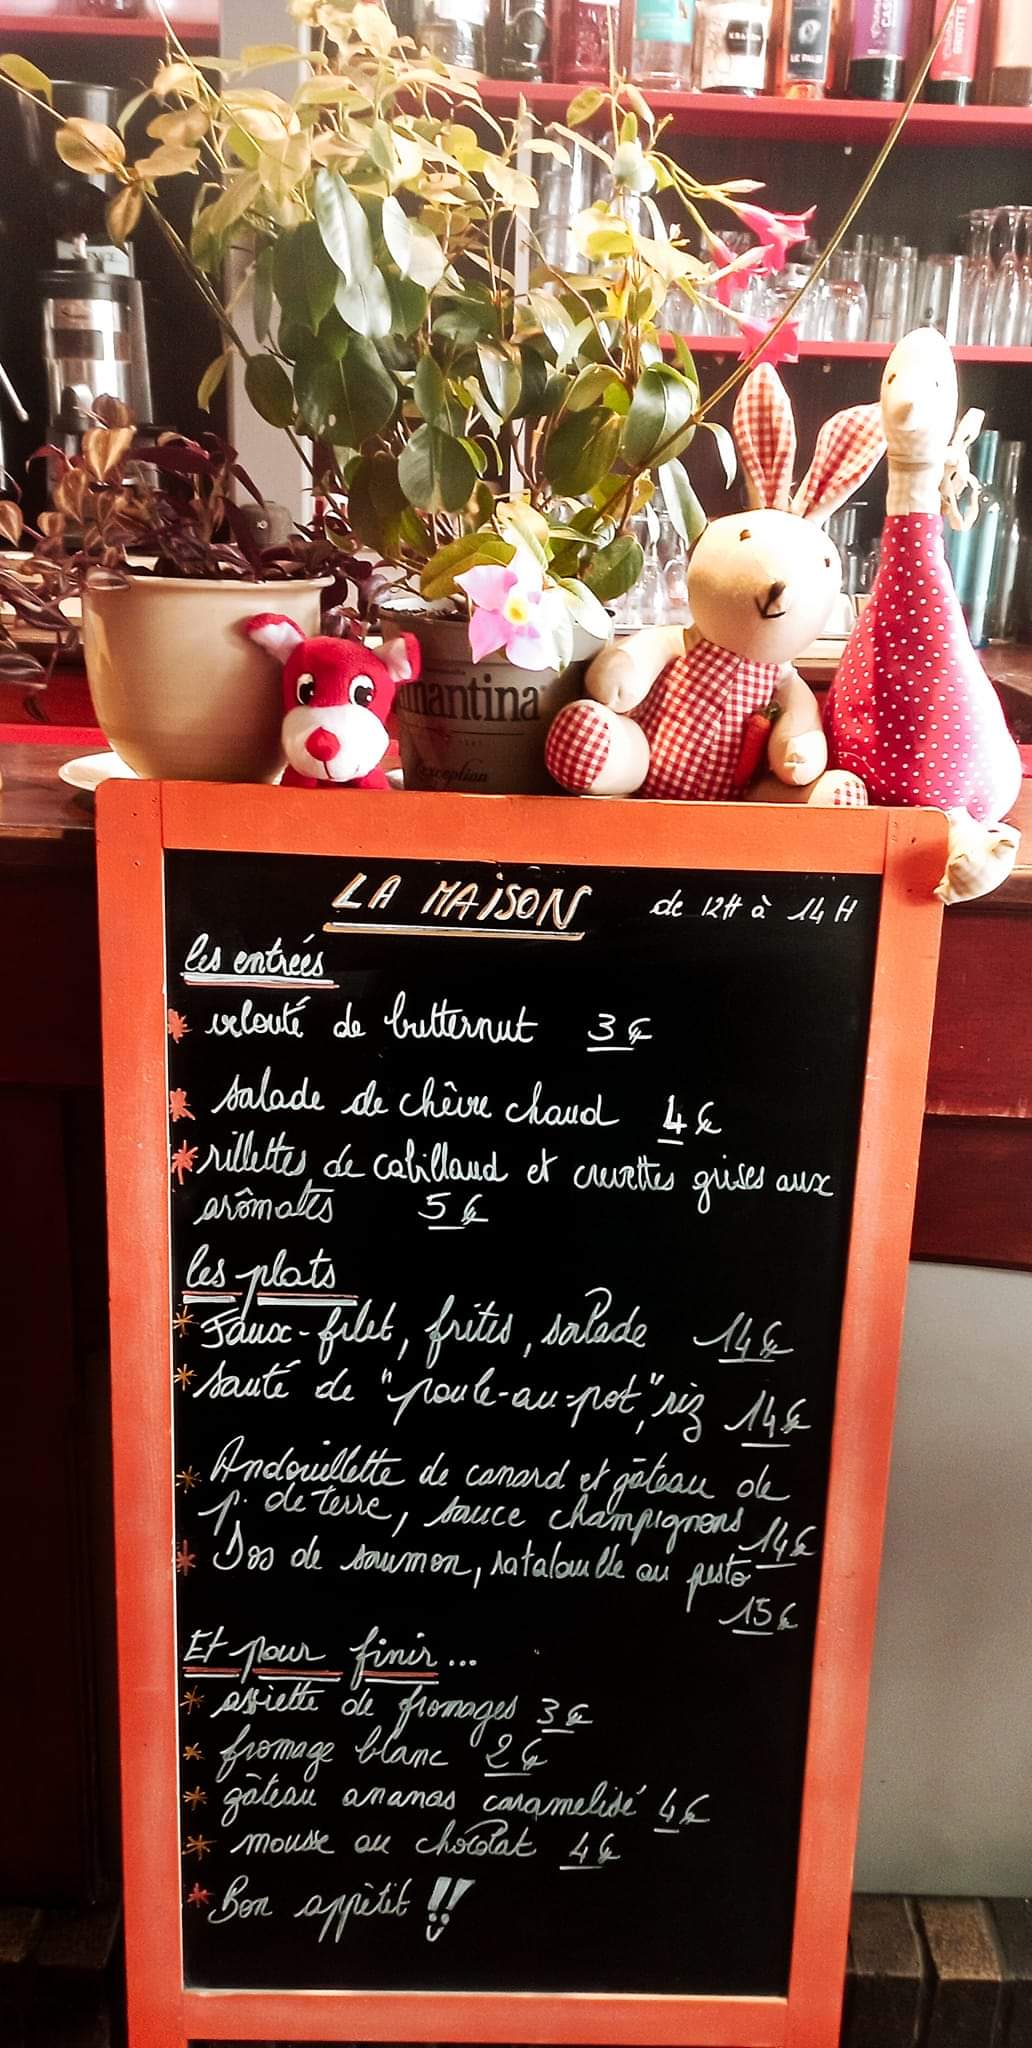 KRAKEN
LE PALE
CAS
GOUTTE
mantina
exception
LA MAISON de 12H à 14H
les entrées
* velouté de butternut 3€
* salade de chèvre chaud 4€
* rillettes de cabillaud et crevettes grises aux
arômates 5€
les plats
* Faux-filet, frites, salade 14€
* sauté de "poule-au-pot", riz 14€
* Andouillette de canard et gâteau de
p. de terre, sauce champignons 14€
* Dos de saumon, ratatouille au pesto
15€
Et pour finir...
* assiette de fromages 3€
* fromage blanc 2€
* gâteau ananas caramelisé 4€
* mousse au chocolat 4€
* Bon appètit !!